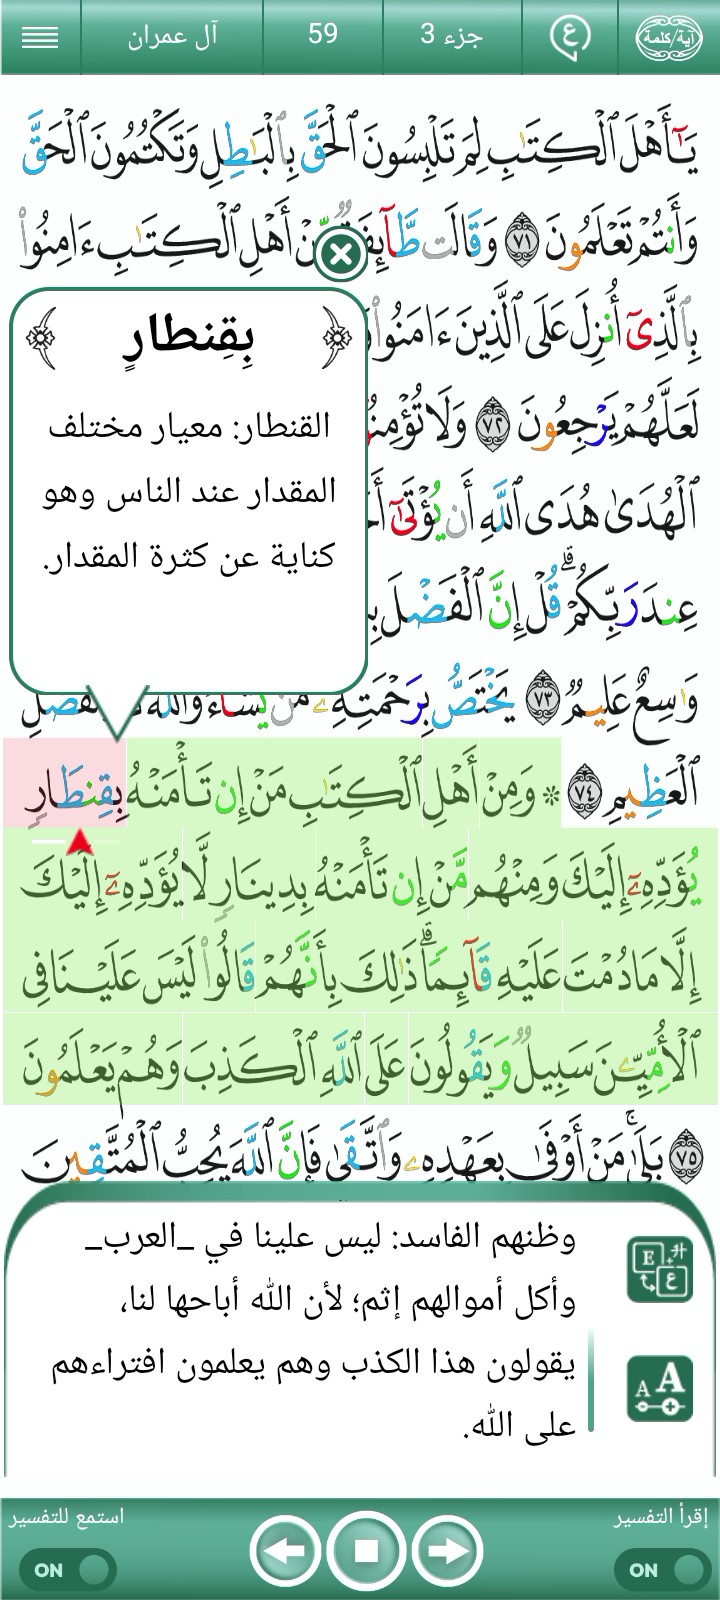 آية/كلمة
ع
جزء 3
59
آل عمران
يَـٰٓأَهْلَ ٱلْكِتَـٰبِ لِمَ تَلْبِسُونَ ٱلْحَقَّ بِٱلْبَـٰطِلِ وَتَكْتُمُونَ ٱلْحَقَّ
وَأَنتُمْ تَعْلَمُونَ ٧١ وَقَالَت طَّآئِفَةٌ مِّنْ أَهْلِ ٱلْكِتَـٰبِ ءَامِنُوا۟
بِٱلَّذِىٓ أُنزِلَ عَلَى ٱلَّذِينَ ءَامَنُوا۟
لَعَلَّهُمْ يَرْجِعُونَ ٧٢ وَلَا
ٱلْهُدَىٰ هُدَى ٱللَّهِ أَن يُؤْتَىٰٓ
عِندَ رَبِّكُمْ ۗ قُلْ إِنَّ ٱلْفَضْلَ
وَٰسِعٌ عَلِيمٌ ٧٣ يَخْتَصُّ بِرَحْمَتِهِۦ مَن يَشَآءُ وَٱللَّهُ
ٱلْعَظِيمِ ٧٤ ۞ وَمِنْ أَهْلِ ٱلْكِتَـٰبِ مَنْ إِن تَأْمَنْهُ بِقِنطَارٍ
يُؤَدِّهِۦٓ إِلَيْكَ وَمِنْهُم مَّنْ إِن تَأْمَنْهُ بِدِينَارٍ لَّا يُؤَدِّهِۦٓ إِلَيْكَ
إِلَّا مَا دُمْتَ عَلَيْهِ قَآئِمًا ۗ ذَٰلِكَ بِأَنَّهُمْ قَالُوا۟ لَيْسَ عَلَيْنَا فِى
ٱلْأُمِّيِّـۧنَ سَبِيلٌ وَيَقُولُونَ عَلَى ٱللَّهِ ٱلْكَذِبَ وَهُمْ يَعْلَمُونَ
٧٥ بَلَىٰ ۚ مَنْ أَوْفَىٰ بِعَهْدِهِۦ وَٱتَّقَىٰ فَإِنَّ ٱللَّهَ يُحِبُّ ٱلْمُتَّقِينَ
بِقِنطارٍ
القنطار: معيار مختلف
المقدار عند الناس وهو
كناية عن كثرة المقدار.
وظنهم الفاسد: ليس علينا في _العرب_
وأكل أموالهم إثم؛ لأن الله أباحها لنا،
يقولون هذا الكذب وهم يعلمون افتراءهم
على الله.
E ع
A A
إقرأ التفسير
ON
استمع للتفسير
ON